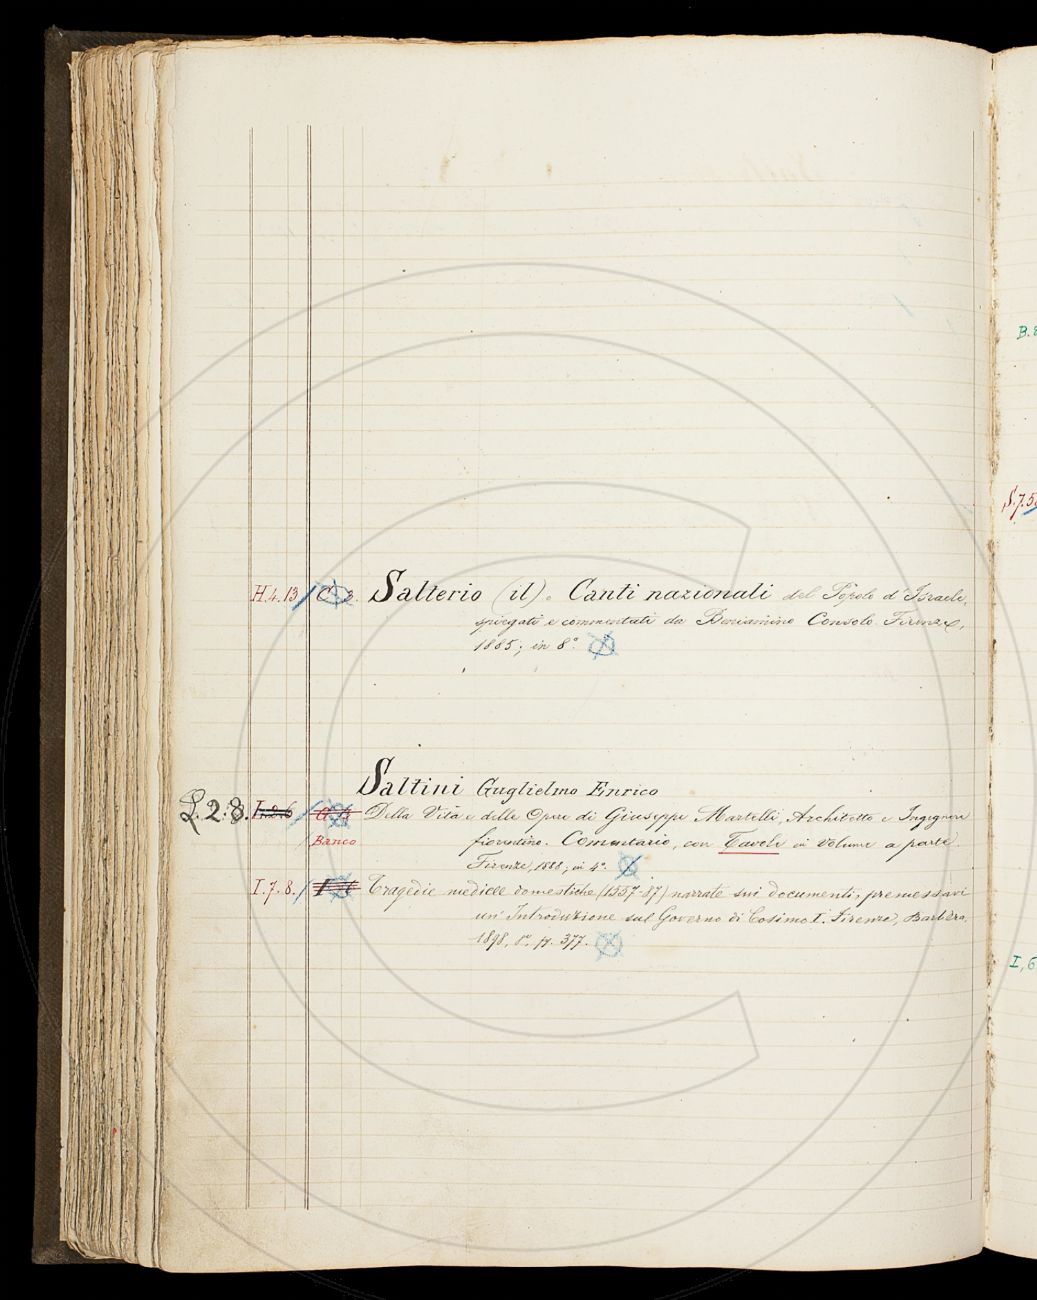 B.
H.4.13 Salterio (il). Canti nazionali del Popolo d'Israele,
spiegati e commentati da Beniamino Consolo. Firenze,
1885; in 8°.
Saltini Guglielmo Enrico
L.2.8. Della Vita e delle Opere di Giuseppe Martelli, Architetto e Ingegnere
Banco fiorentino. Comentario, con Tavole in volume a parte.
Firenze, 1888; in 4°.
I.7.8. Tragedie medicee domestiche (1557-87) narrate sui documenti, premessavi
un' Introduzione sul Governo di Cosimo I. Firenze, Barbèra,
1898, 8°. p. 377.
I,6